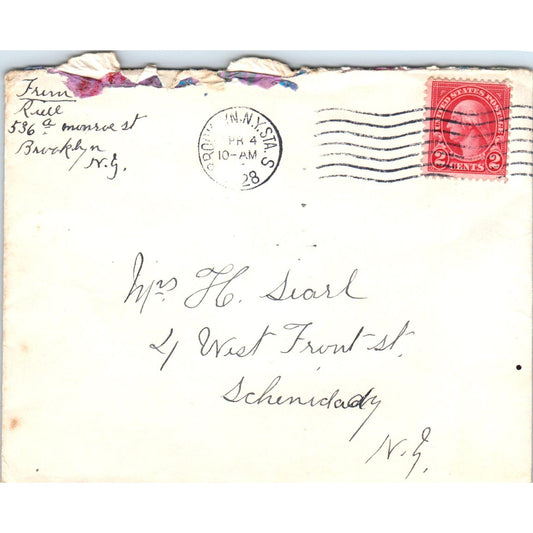 From
Ruee
536 a monroe st
Brooklyn
N.Y.
BROOKLYN. N.Y. STA. S
APR 4
10-AM
28
UNITED STATES POSTAGE
2 CENTS 2
Mrs H. Searl
4 West Front st.
Schenidady
N.Y.